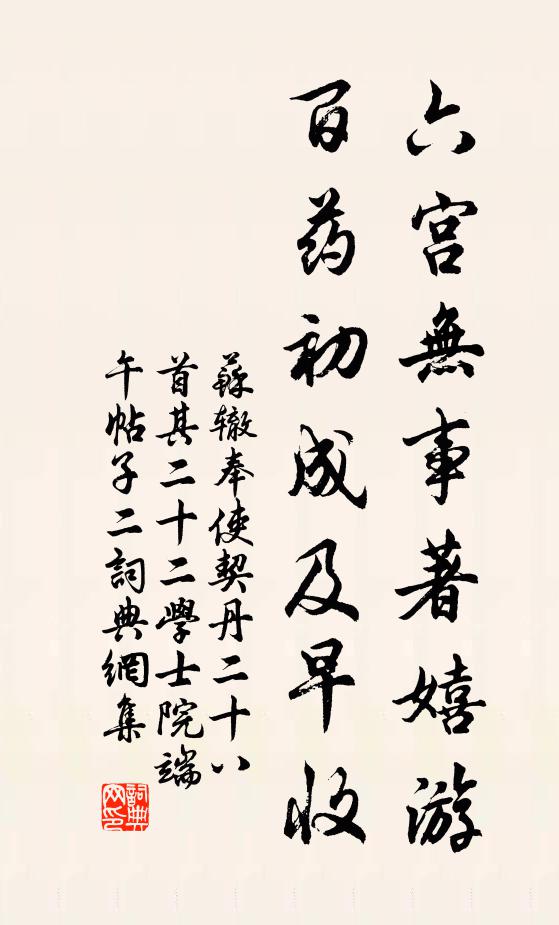 六宫無事著嬉游
百药初成及早收
蘇辙奉使契丹二十八
首其二十二學士院端
午帖子二詞典網集
詞典
网印